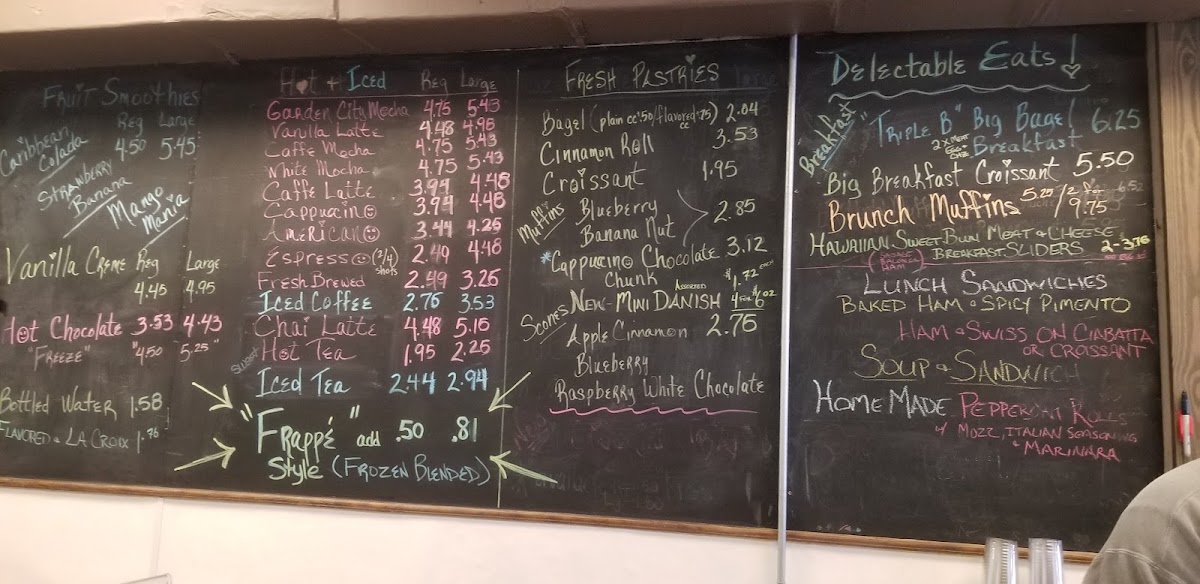 Fruit Smoothies
Reg Large
Caribbean 4.50 5.45
Colada
Strawberry
Banana
Mango
Mania
Vanilla Creme Reg Large
4.45 4.95
Hot Chocolate 3.53 4.43
"Freeze" "4.50 5.25"
Bottled Water 1.58
Flavored & La Croix 1.76
Hot + Iced Reg Large
Garden City Mocha 4.75 5.43
Vanilla Latte 4.48 4.98
Caffe Mocha 4.75 5.43
White Mocha 4.75 5.43
Caffe Latte 3.99 4.48
Cappucino 3.94 4.48
Americano 3.44 4.25
Espresso (2/4) 2.49 4.48
shots
Fresh Brewed 2.49 3.25
Iced Coffee 2.76 3.53
Chai Latte 4.48 5.15
Hot Tea 1.95 2.25
Sweet
Iced Tea 2.44 2.94
"Frappé" add .50 .81
Style (Frozen Blended)
Fresh Pastries
Bagel (plain cc .50/flavored cc .75) 2.04
Cinnamon Roll 3.53
Croissant 1.95
Muffins
Blueberry
Banana Nut 2.85
*Cappucino Chocolate 3.12
Chunk
Assorted $1.72 each
New-Mini Danish 4 for $6.02
Scones
Apple Cinnamon 2.75
Blueberry
Raspberry White Chocolate
Delectable Eats!
Breakfast
"Triple B" Big Bagel 6.25
2x Meat Egg & Chz Breakfast
Big Breakfast Croissant 5.50
Brunch Muffins 5.25 / 2 for 9.75
Hawaiian Sweet Bun Meat & Cheese
Breakfast Sliders 2-3.76
Sausage
Bologna
Ham
Lunch Sandwiches
Baked Ham & Spicy Pimento
Ham & Swiss on Ciabatta
or Croissant
Soup & Sandwich
Home Made Pepperoni Rolls
w/ Mozz, Italian Seasoning
& Marinara